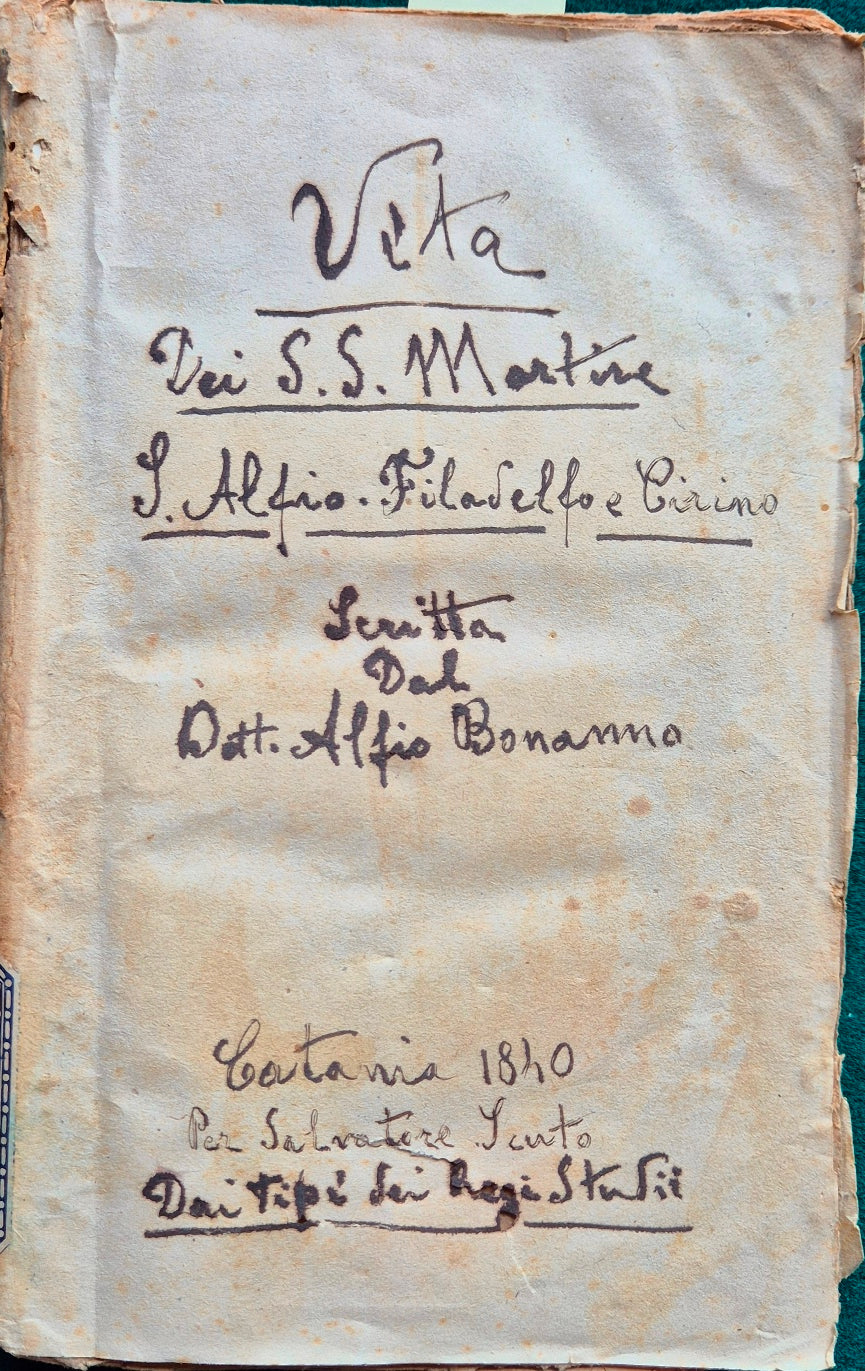 Vita
Dei S.S. Martire
S. Alfio. Filadelfo e Cirino
Scritta
Dal
Dott. Alfio Bonanno
Catania 1840
Per Salvatore Scuto
Dai tipi dei Regi Studii